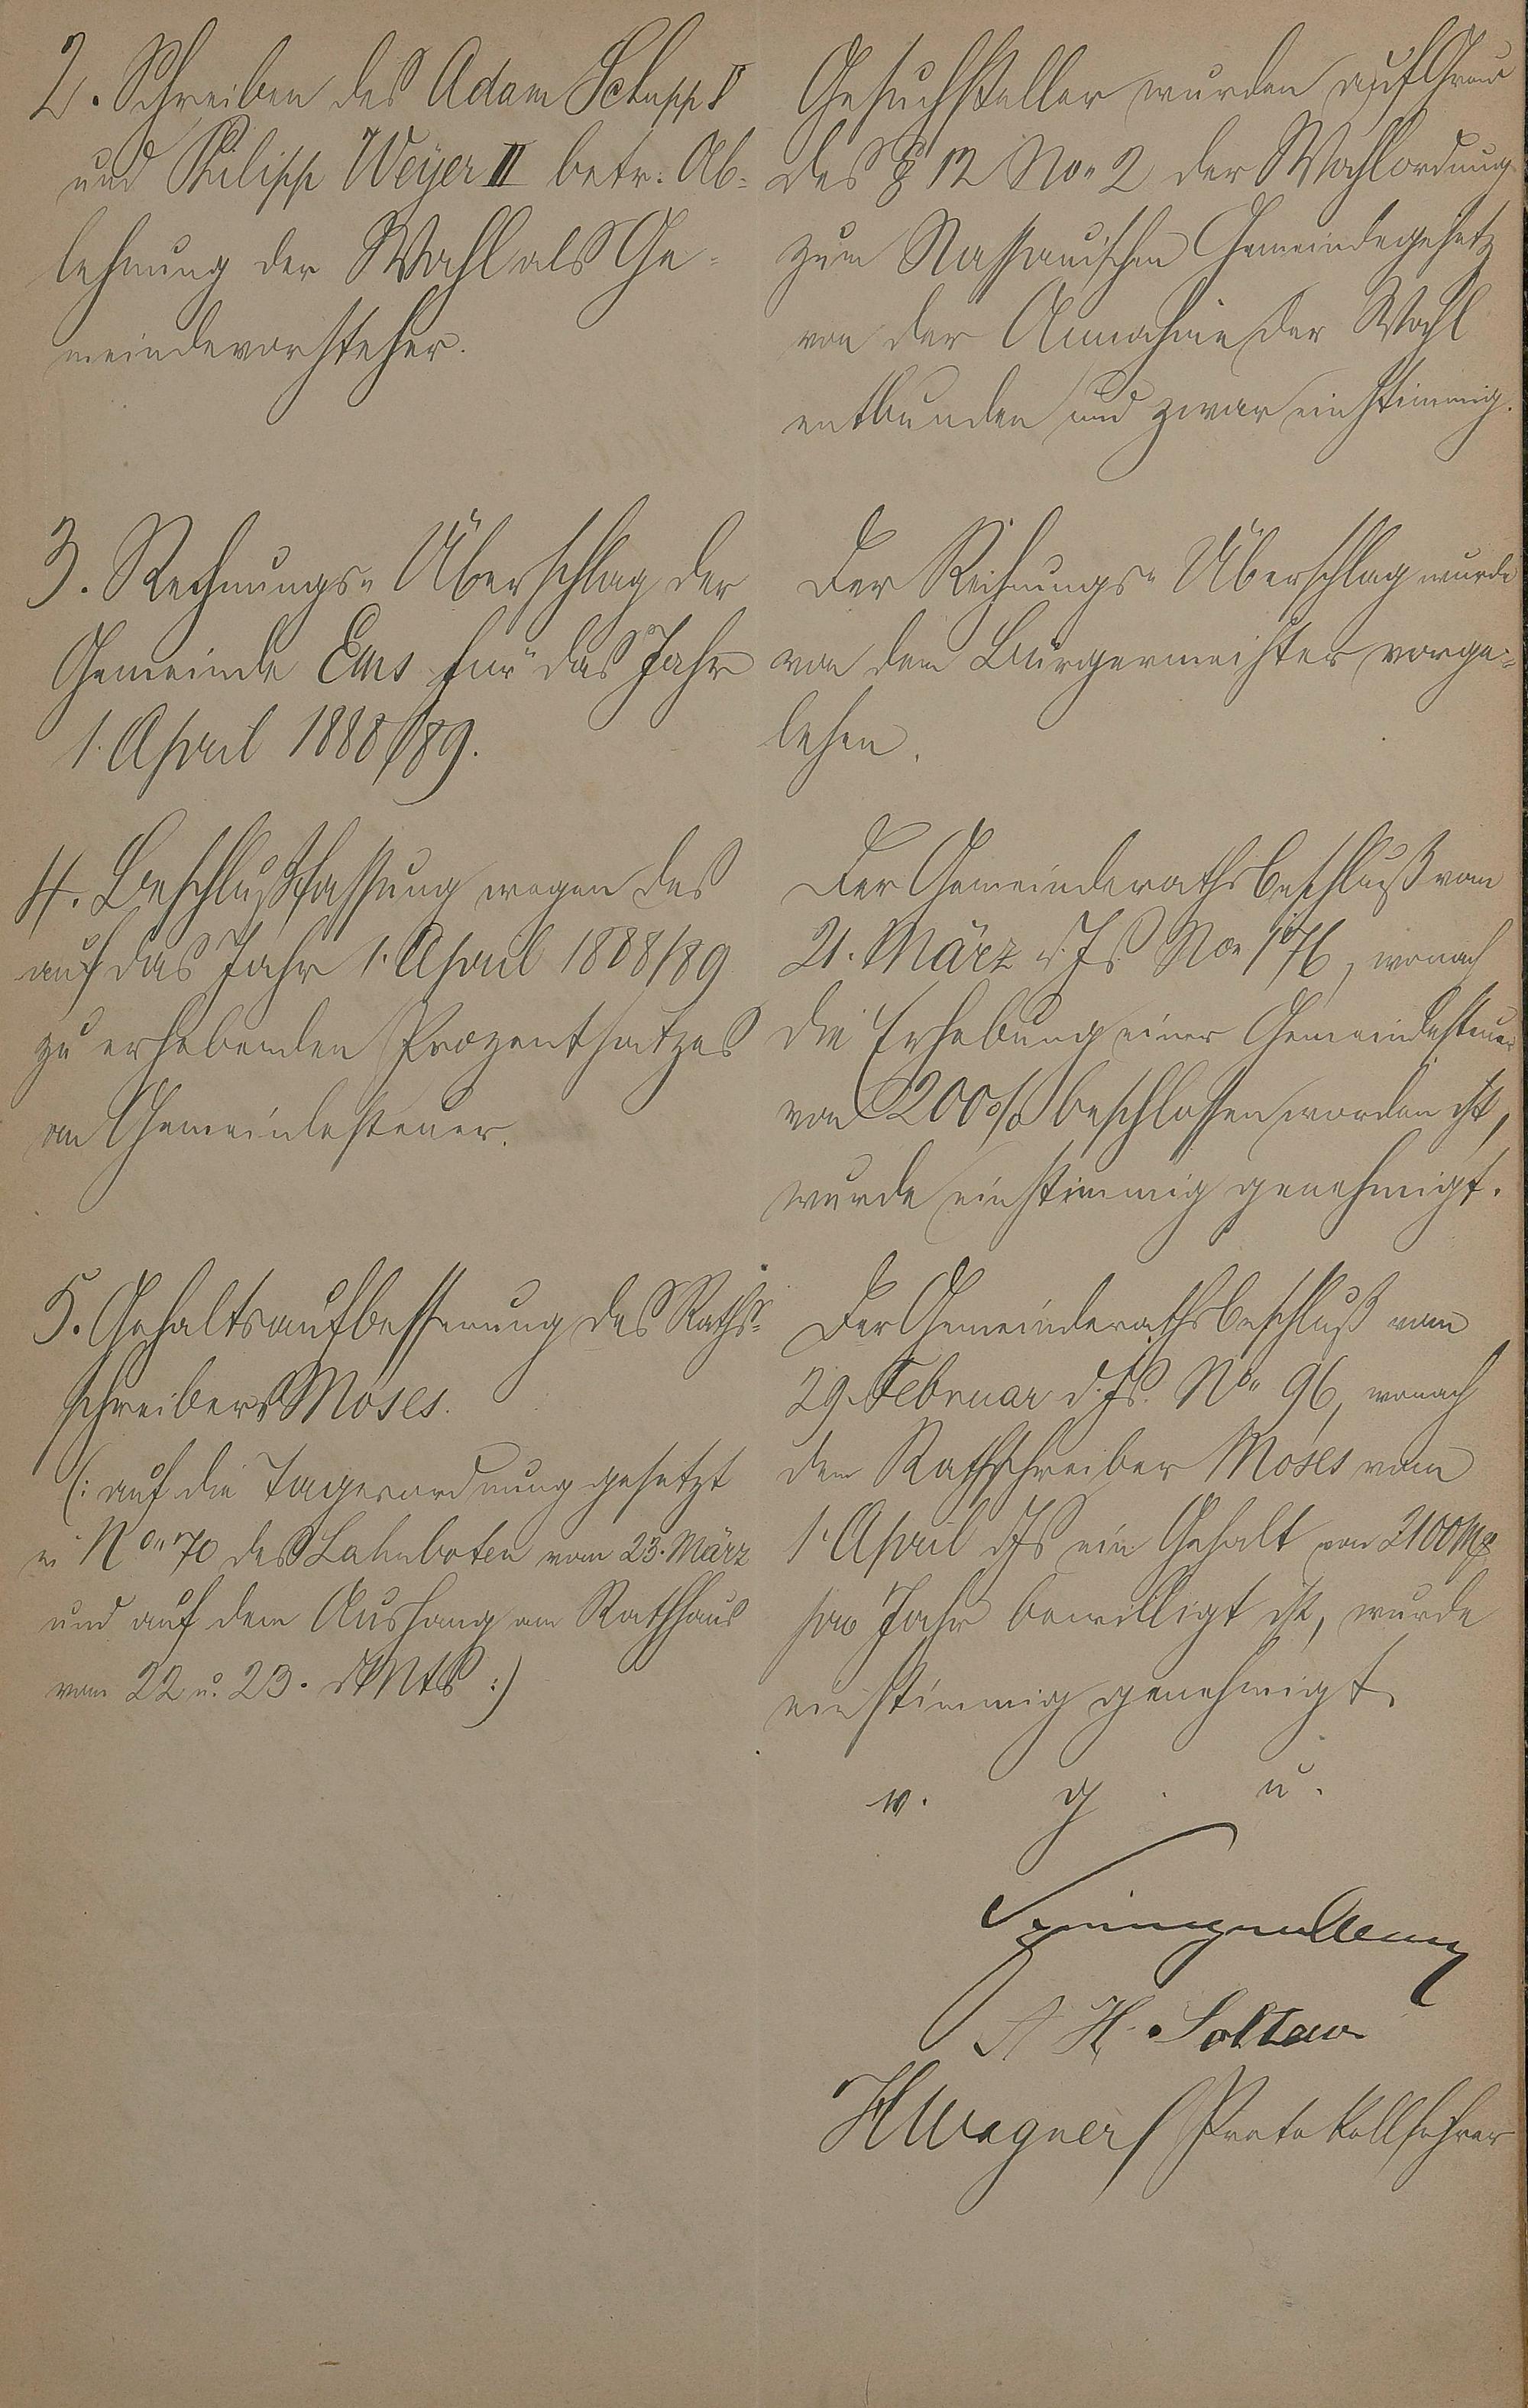 2. Schreiben des Adam Schupp II
und Philipp Weyer III betr. Ab-
lehnung der Wahl als Ge-
meindevorsteher.
Gesuchsteller wurden auf Grund
des § 12 No. 2 der Wahlordnung
zum Nassauischen Gemeindegesetz
von der Annahme der Wahl
entbunden und zwar einstimmig.
3. Rechnungs-Überschlag der
Gemeinde Ems für das Jahr
1. April 1888/89.
Der Rechnungs-Überschlag wurde
von dem Bürgermeister vorge-
lesen.
4. Beschlußfassung wegen des
auf das Jahr 1. April 1888/89
zu erhebenden Prozentsatzes
an Gemeindesteuer.
Der Gemeinderathsbeschluß vom
21. März d. Js No 176, wonach
die Erhebung einer Gemeindesteuer
von 200% beschlossen worden ist,
wurde einstimmig genehmigt.
5. Gehaltsaufbesserung des Raths-
schreibers Moses.
(: auf die Tagesordnung gesetzt
in No 70 des Lahnboten vom 23. März
und auf dem Aushang am Rathhaus
vom 22 u. 23. d Mts :)
Der Gemeinderathsbeschluß vom
29. Februar d. Js. No 96, wonach
dem Rathschreiber Moses vom
1. April d Js ein Gehalt von 2100 M
pro Jahr bewilligt ist, wurde
einstimmig genehmigt.
v. g. u.
H. Soltau
H Wagner / Protokollführer